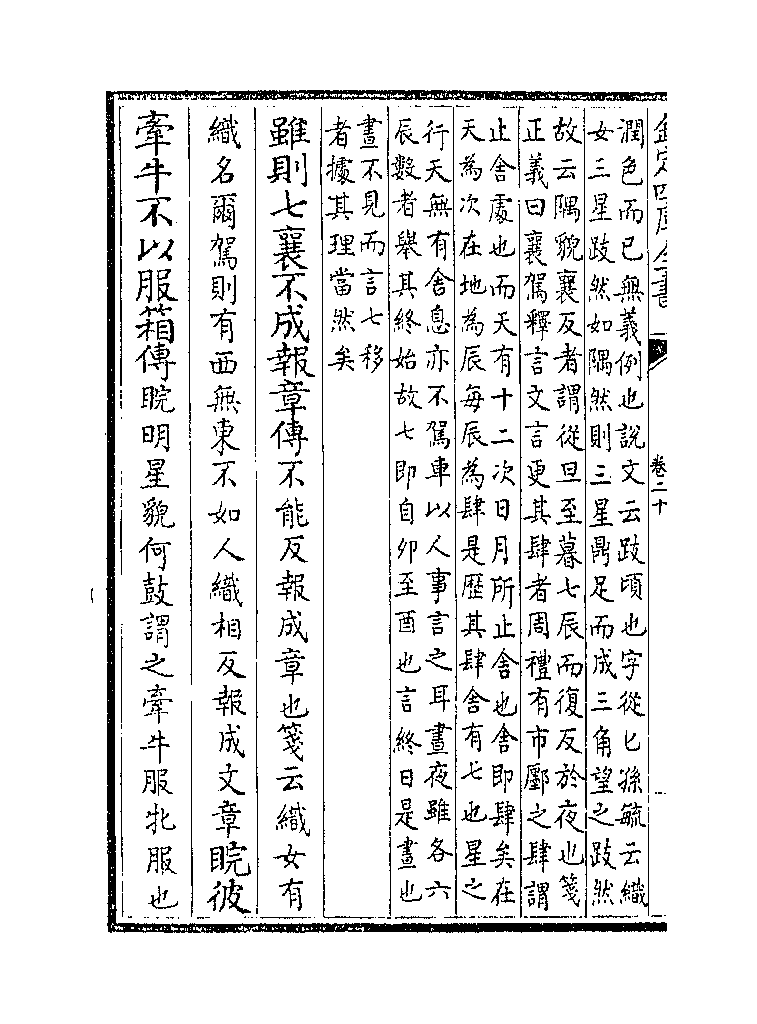 欽定四庫全書
卷二十
潤色而已無義例也說文云跂頃也字從匕孫毓云織
女三星跂然如隅然則三星鼎足而成三角望之跂然
故云隅貌襄反者謂從旦至暮七辰而復反於夜也箋
正義曰襄駕釋言文言更其肆者周禮有市鄽之肆謂
止舍處也而天有十二次日月所止舍也舍即肆矣在
天為次在地為辰每辰為肆是歷其肆舍有七也星之
行天無有舍息亦不駕車以人事言之耳晝夜雖各六
辰數者舉其終始故七即自卯至酉也言終日是晝也
晝不見而言七移
者據其理當然矣
雖則七襄不成報章傳不能反報成章也箋云織女有
織名爾駕則有西無東不如人織相反報成文章睆彼
牽牛不以服箱傳睆明星貌何鼓謂之牽牛服牝服也